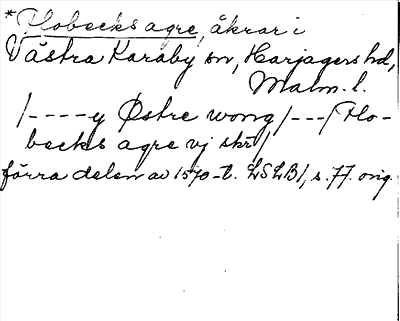 *Flobecks agre, åkrar i
Västra Karaby sn, Harjagers hd,
Malm. l.
/----y Østre wong/---/ Flo-
becks agre vj skr/
förra delen av 1570-t. LSLB1, s. 77. orig.